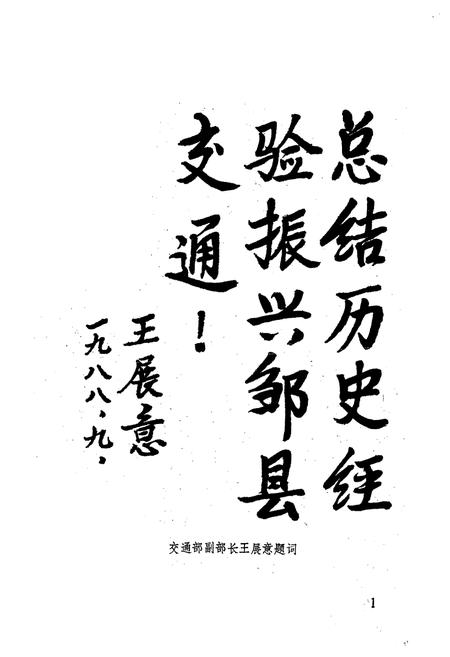 总结历史经
验振兴邹县
交通！
王展意
一九八八.九.
交通部副部长王展意题词
1